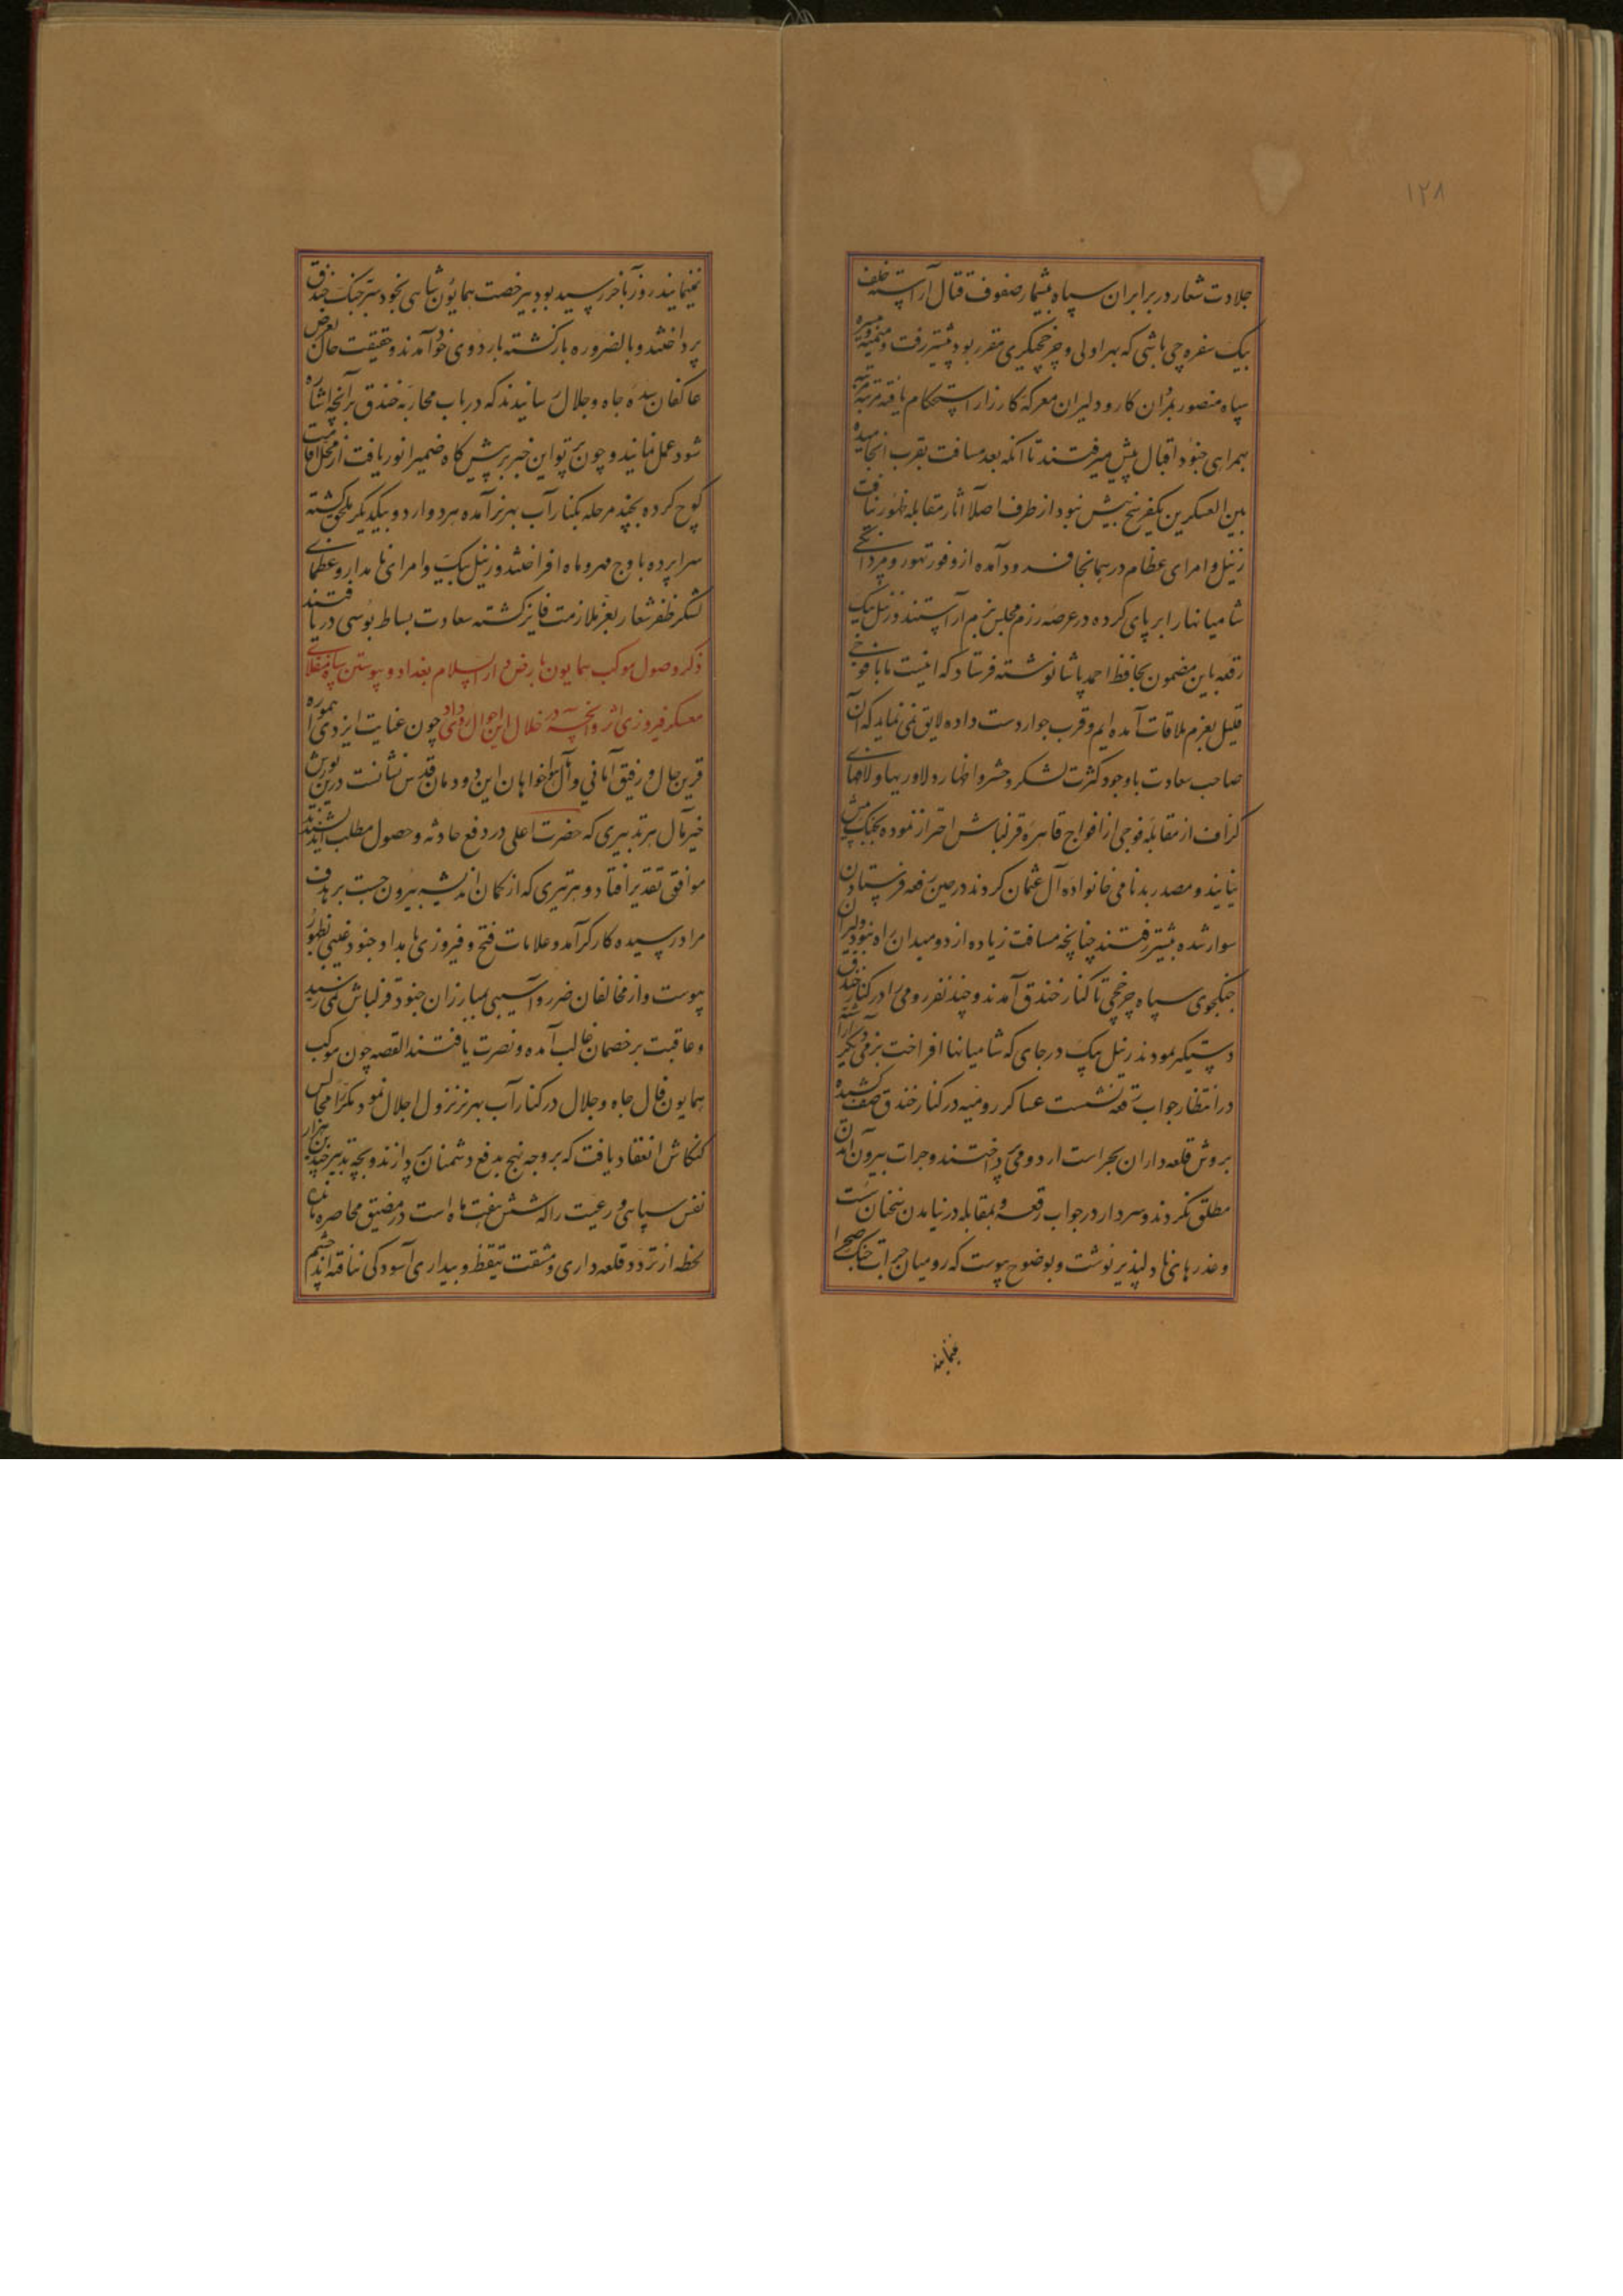 ۱۲۸
جلادت شعار در برابر ان سپاه بیشمار صفوف قتال آراسته خلف
بیک سفره چی باشی که بهراولی و چرخچیگری مقرر بود پیشتر رفت و میمنه و میسره
سپاه منصور بمردان کار و دلیران معرکه کارزار استحکام یافته مرتبه مرتبه
بهمراهی جنود اقبال پیش میرفتند تا آنکه بعد مسافت بقرب انجامیده
بین العسکرین یکفرسخ بیش نبود از طرف اصلا آثار مقابله ظهور نیافت
زینل و امرای عظام در همانجا فرود آمده از وفور تهور و مردانگی
شامیانها را بر پای کرده در عرصه رزم مجلس بزم آراستند و زینل بیک
رقعه باین مضمون بحافظ احمد پاشا نوشته فرستاد که اینست ما با فوجی
قلیل بعزم ملاقات آمده ایم و قرب جوار دست داده لایق نمی نماید که آن
صاحب سعادت با وجود کثرت لشکر و حشر و اظهار دلاوریها و لافهای
گزاف از مقابله فوجی از افواج قاهره قزلباش احتراز نموده بجنک پیش
نیایند و مصدر بدنامی خانواده آل عثمان کردند در حین رقعه فرستادن
سوار شده پیشتر رفتند چنانچه مسافت زیاده از دو میدان راه نبود دلیران
جنکجوی سپاه چرخچی تا کنار خندق آمدند و چند نفر رومی را در کنار خندق
دستیکر نمودند زینل بیک در جای که شامیانها افراخت بزمی دیگر آراسته
در انتظار جواب رقعه نشست عساکر رومیه در کنار خندق صف کشیده
بروش قلعه داران بحراست اردو می پرداختند و جرات بیرون آمدن
مطلق نکردند و سردار در جواب رقعه و بمقابله در نیامدن سخنان سست
و عذرهای نادلپذیر نوشت و بوضوح پیوست که رومیان جرات جنک صحرا
نمینمایند
نمینمایند روز بآخر رسیده بود بیرخصت همایون شاهی بخود سر جنک خندق
پرداختند و بالضروره بازکشته باردوی خود آمدند و حقیقت حال بعرض
عاکفان سده جاه و جلال رسانیدند که در باب محاربه خندق برآنچه اشاره
شود عمل نمایند و چون پرتو این خبر بر پیش کاه ضمیر انور یافت از محل اقامت
کوچ کرده بچند مرحله بکنار آب بهرز آمده هر دو اردو بیکدیگر ملحق کشته
سراپرده باوج مهر و ماه افراختند و زینل بیک و امرای نامدار و عظمای
لشکر ظفر شعار بعز ملازمت فایز کشته سعادت بساط بوسی دریافتند
ذکر وصول موکب همایون بارض دار السلام بغداد و پیوستن سپاه منقلای
معسکر فیروزی اثر و آنچه در خلال این احوال روی داد چون عنایت ایزدی همواره
قرین حال و رفیق آمانی و آمال هواخواهان این دودمان قدس نشانست درین یورش
خیر مآل هر تدبیری که حضرت اعلی در دفع حادثه و حصول مطلب اندیشیدند
موافق تقدیر افتاد و هر تیری که از کمان اندیشه بیرون جست بر هدف
مراد رسیده کارگر آمد و علامات فتح و فیروزی بامداد جنود غیبی بظهور
پیوست و از مخالفان ضرر و آسیبی بمبارزان جنود قزلباش نمی رسید
و عاقبت بر خصمان غالب آمده و نصرت یافتند القصه چون موکب
همایون فال جاه و جلال در کنار آب بهرز نزول اجلال نمود مکررا مجالس
کنکاش انعقاد یافت که بر وجه نهج بدفع دشمنان پردازند و بچه تدبیر چندین هزار
نفس سپاهی و رعیت را که شش هفت ماه است در مضیق محاصره مانده
لحظه از تردد و قلعه داری و مشقت تیقظ و بیداری آسودگی نیافته اند چشم